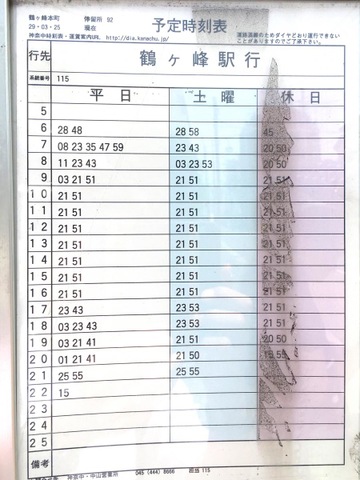 鶴ヶ峰本町 停留所 92 予定時刻表 道路混雑のためダイヤどおり運行できない
29・03・25 ことがありますのでご了承下さい。
神奈中時刻表・運賃案内URL http://dia.kanachu.jp/
行先 鶴ヶ峰駅行
系統番号 115
平日 土曜 休日
5
6 28 48 28 58 45
7 08 23 35 47 59 23 43 20 50
8 11 23 43 03 23 53 20 50
9 03 21 51 21 51 21 51
10 21 51 21 51 21 51
11 21 51 21 51 21 51
12 21 51 21 51 21 51
13 21 51 21 51 21 51
14 21 51 21 51 21 51
15 21 51 21 51 21 51
16 21 51 21 51 21 51
17 23 43 23 53 21 51
18 03 23 43 23 53 21 51
19 03 21 41 21 51 21 51
20 01 21 41 21 50 55
21 25 55 25 55
22 15
23
24
25
備考
神奈中・中山営業所 045 (444) 8666 担当 115